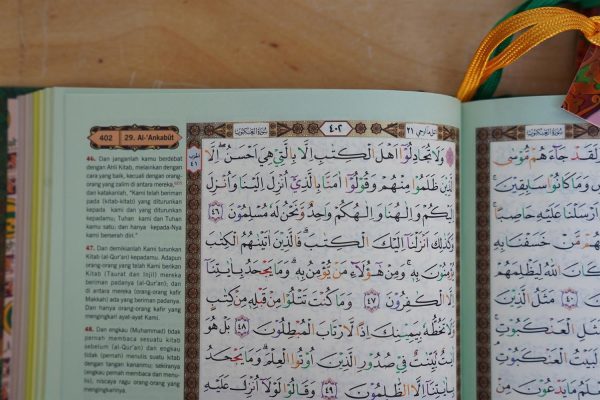 402 29. Al-'Ankabūt
46. Dan janganlah kamu berdebat
dengan Ahli Kitab, melainkan dengan
cara yang baik, kecuali dengan orang-
orang yang zalim di antara mereka,
dan katakanlah, "Kami telah beriman
pada (kitab-kitab) yang diturunkan
kepada kami dan yang diturunkan
kepadamu; Tuhan kami dan Tuhan
kamu satu; dan hanya kepada-Nya
kami berserah diri."
47. Dan demikianlah Kami turunkan
Kitab (al-Qur'an) kepadamu. Adapun
orang-orang yang telah Kami berikan
Kitab (Taurat dan Injil) mereka
beriman padanya (al-Qur'an); dan
di antara mereka (orang-orang kafir
Makkah) ada yang beriman padanya.
Dan hanya orang-orang kafir yang
mengingkari ayat-ayat Kami.
48. Dan engkau (Muhammad) tidak
pernah membaca sesuatu kitab
sebelum (al-Qur'an) dan engkau
tidak (pernah) menulis suatu kitab
dengan tangan kananmu; sekiranya
(engkau pernah membaca dan menu-
lis), niscaya ragu orang-orang yang
mengingkarinya.
سورة العنكبوت ٤٠٢ ٢١
وَلَا تُجَادِلُوْٓا اَهْلَ الْكِتٰبِ اِلَّا بِالَّتِيْ هِيَ اَحْسَنُ اِلَّا
الَّذِيْنَ ظَلَمُوْا مِنْهُمْ وَقُوْلُوْٓا اٰمَنَّا بِالَّذِيْٓ اُنْزِلَ اِلَيْنَا وَاُنْزِلَ
اِلَيْكُمْ وَاِلٰهُنَا وَاِلٰهُكُمْ وَاحِدٌ وَّنَحْنُ لَهٗ مُسْلِمُوْنَ ٤٦
وَكَذٰلِكَ اَنْزَلْنَآ اِلَيْكَ الْكِتٰبَ فَالَّذِيْنَ اٰتَيْنٰهُمُ الْكِتٰبَ
يُؤْمِنُوْنَ بِهٖ وَمِنْ هٰٓؤُلَاۤءِ مَنْ يُّؤْمِنُ بِهٖ وَمَا يَجْحَدُ بِاٰيٰتِنَآ
اِلَّا الْكٰفِرُوْنَ ٤٧ وَمَا كُنْتَ تَتْلُوْا مِنْ قَبْلِهٖ مِنْ كِتٰبٍ
وَّلَا تَخُطُّهٗ بِيَمِيْنِكَ اِذًا لَّارْتَابَ الْمُبْطِلُوْنَ ٤٨ بَلْ هُوَ
اٰيٰتٌ بَيِّنٰتٌ فِيْ صُدُوْرِ الَّذِيْنَ اُوْتُوا الْعِلْمَ وَمَا يَجْحَدُ
بِاٰيٰتِنَآ اِلَّا الظّٰلِمُوْنَ ٤٩ وَقَالُوْا لَوْلَآ اُنْزِلَ عَلَيْهِ
سورة العنكبوت
وَلَقَدْ جَاۤءَهُمْ مُّوْسٰى
وَمَا كَانُوْا سَابِقِيْنَ
اَرْسَلْنَا عَلَيْهِ حَاصِبًا
مَّنْ خَسَفْنَا بِهِ
كَانَ اللّٰهُ لِيَظْلِمَهُمْ
٤٠ مَثَلُ الَّذِيْنَ
الْعَنْكَبُوْتِ
لَبَيْتُ الْعَنْكَبُوْتِ
مَا يَدْعُوْنَ مِنْ